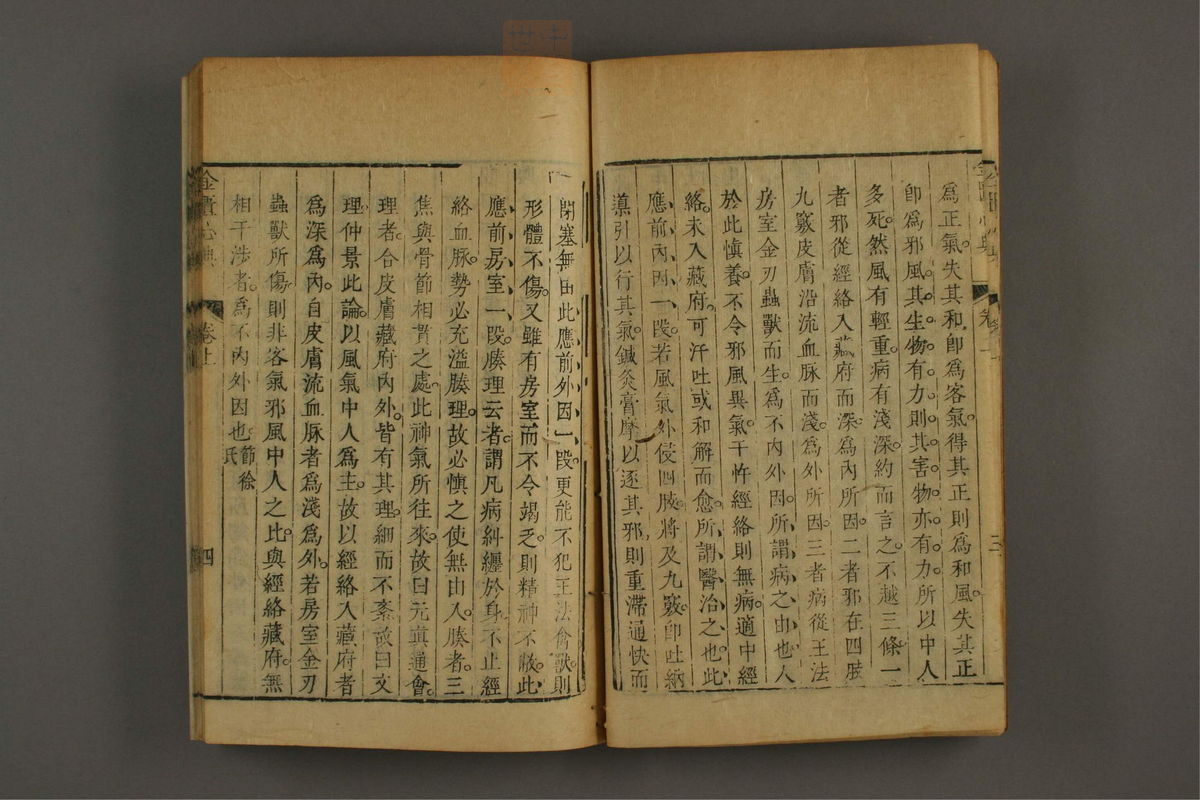 爲正氣。失其和。即爲客氣。得其正則爲和風。失其正
即爲邪風。其生物有力。則其害物亦有力。所以中人
多死。然風有輕重。病有淺深。約而言之。不越三條。一
者邪從經絡入藏府而深。爲內所因。二者邪在四肢
九竅皮膚沿流血脉而淺。爲外所因。三者病從王法
房室金刃蟲獸而生。爲不內外因。所謂病之由也。人
於此愼養。不令邪風異氣干忤經絡則無病。適中經
絡。未入藏府。可汗吐或和解而愈。所謂醫治之也。此
應前內因一段。若風氣外侵四肢。將及九竅。即吐納
導引以行其氣。鍼灸膏摩以逐其邪。則重滯通快。而
閉塞無由。此應前外因一段。更能不犯王法禽獸。則
形體不傷。又雖有房室。而不令竭乏。則精神不敝。此
應前房室一段。腠理云者。謂凡病糾纒於身。不止經
絡血脉。勢必充溢腠理。故必愼之使無由入。腠者。三
焦與骨節相貫之處。此神氣所往來。故曰元眞通會。
理者。合皮膚藏府內外。皆有其理。細而不紊。故曰文
理。仲景此論。以風氣中人爲主。故以經絡入藏府者
爲深爲內。自皮膚流血脉者爲淺爲外。若房室金刃
蟲獸所傷。則非客氣邪風中人之比。與經絡藏府無
相干涉者。爲不內外因也。節徐氏
金匱心典
卷上
三
四